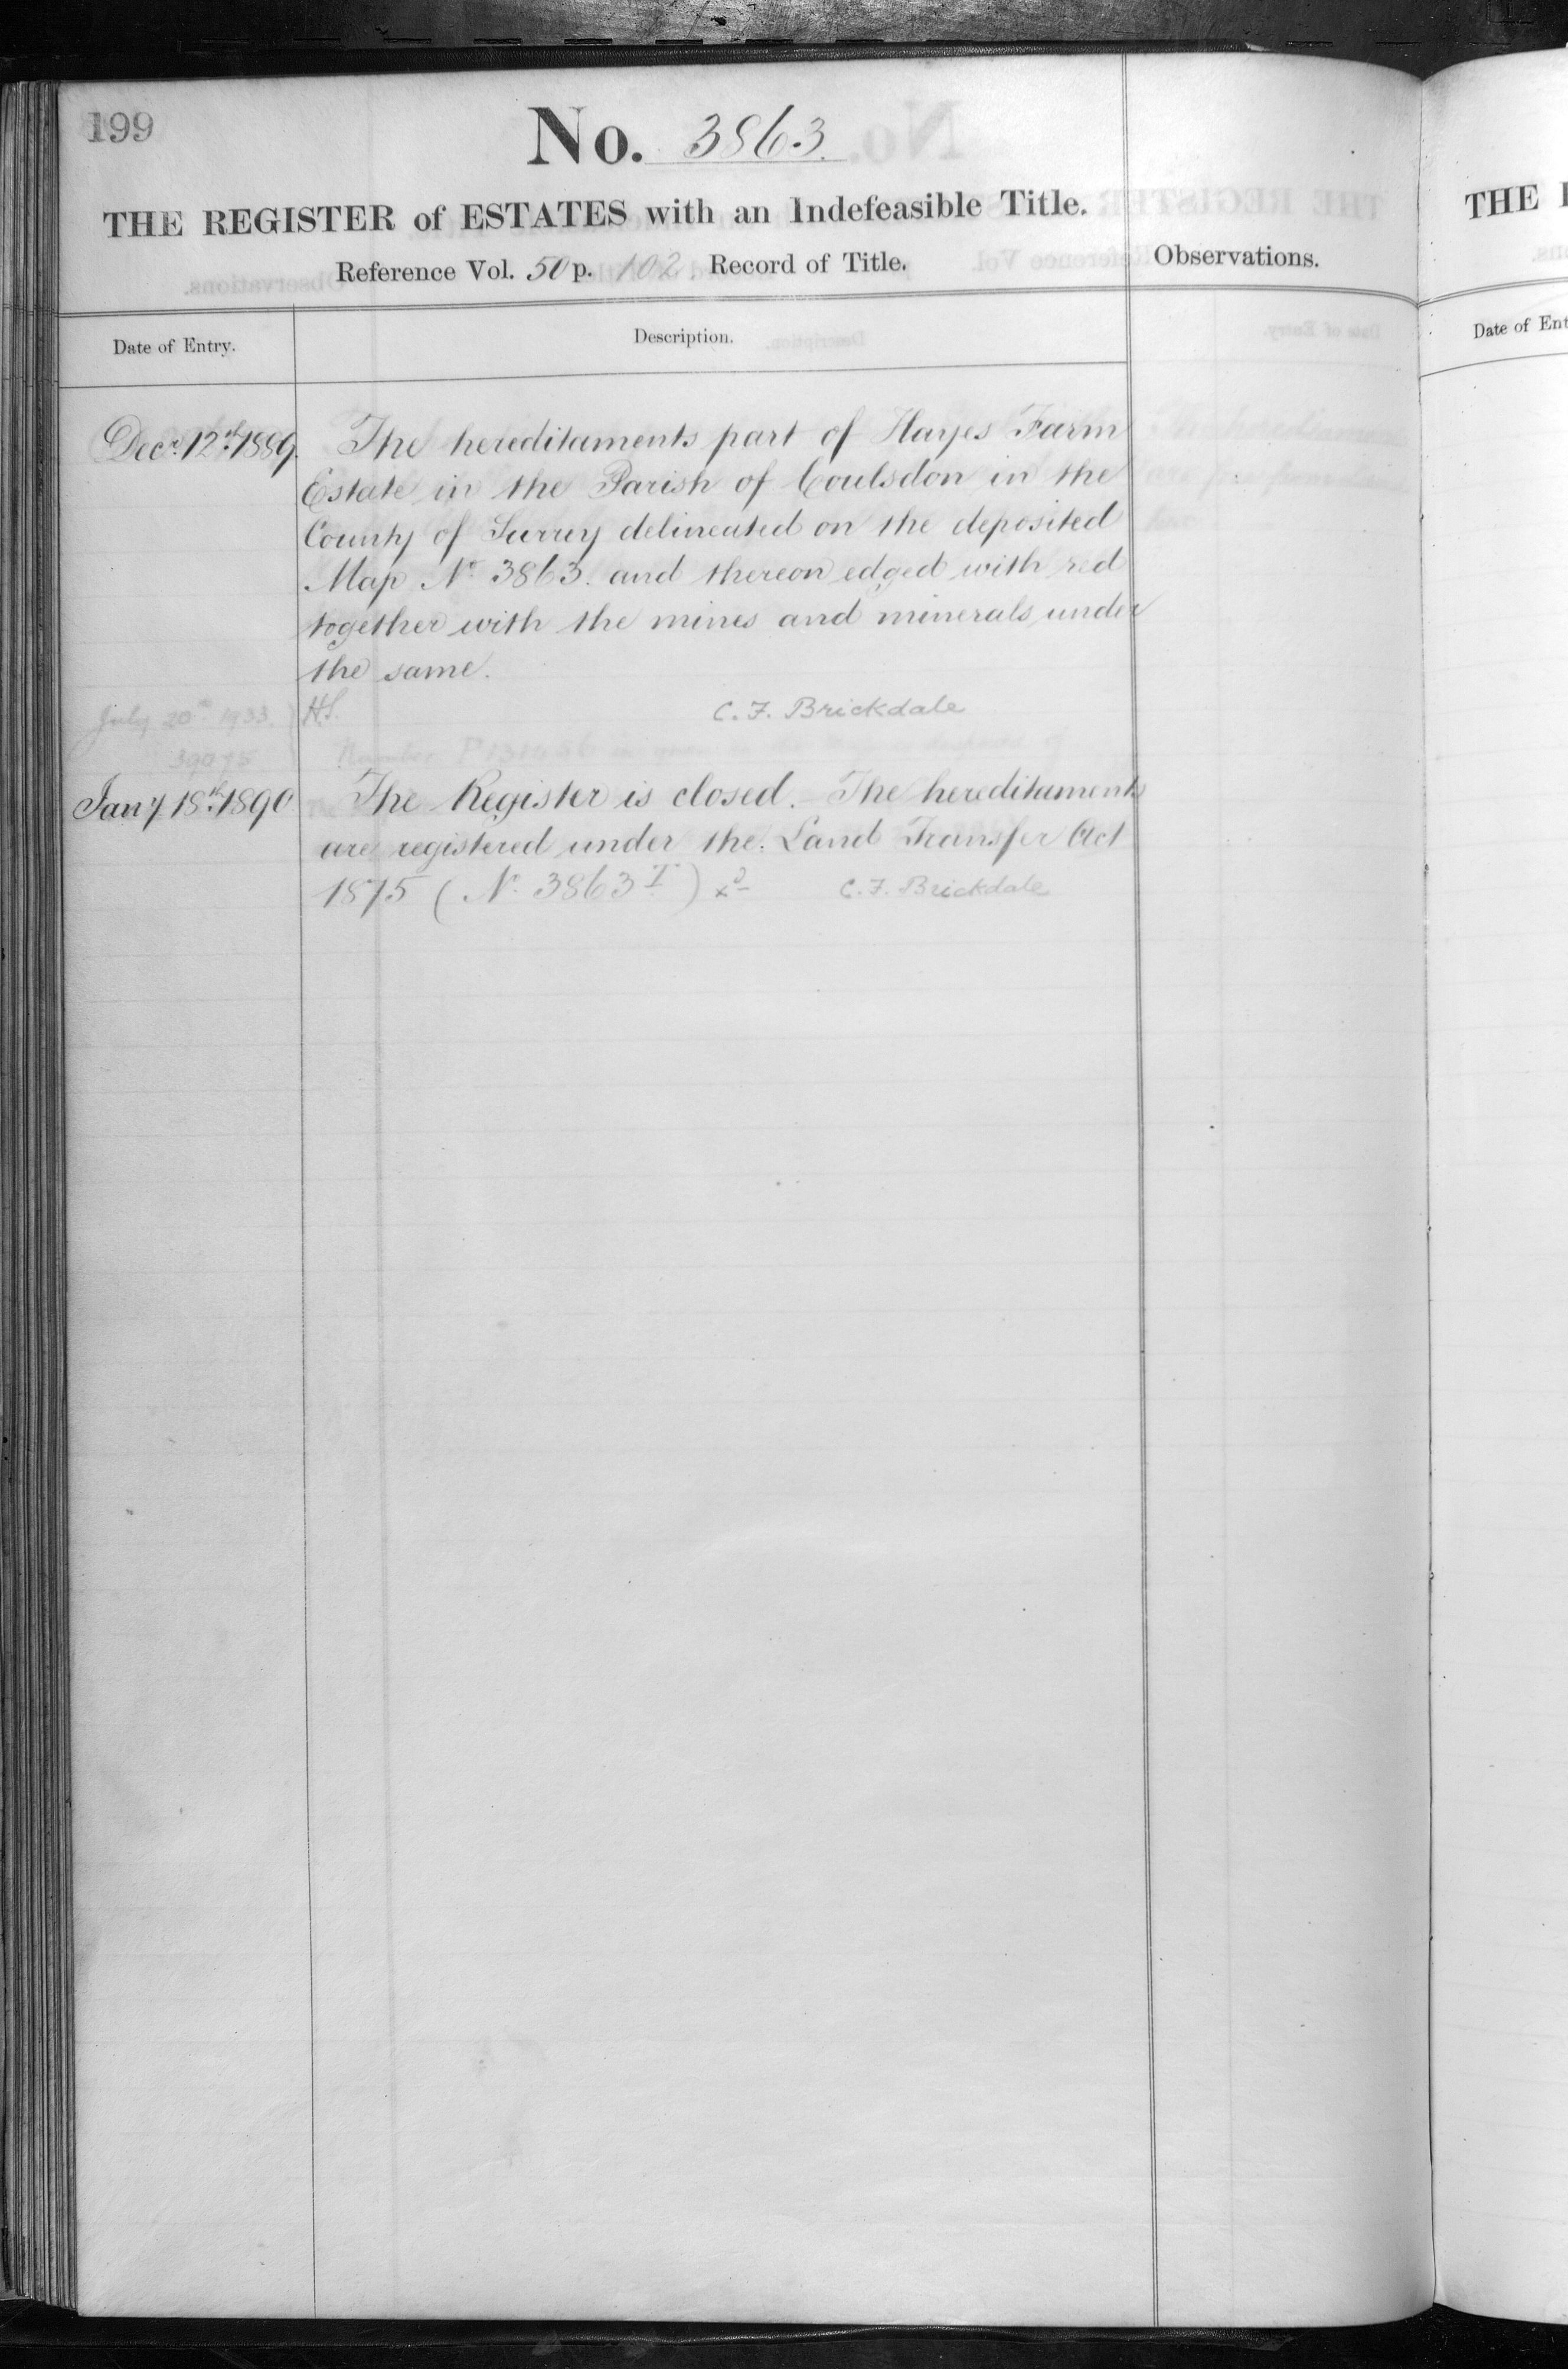 199
No. 3863.
THE REGISTER of ESTATES with an Indefeasible Title.
Reference Vol. 50 p. 102. Record of Title.
Observations.
Date of Entry.
Description.
Decr. 12th 1889. The hereditaments part of Hayes Farm
Estate in the Parish of Coulsdon in the
County of Surrey delineated on the deposited
Map No. 3863. and thereon edged with red
together with the mines and minerals under
the same.
July 20th 1933. H.S. C. F. Brickdale
39075 Number P131456 is given
Jany 18th 1890 The Register is closed. The hereditaments
are registered under the Land Transfer Act
1875 (No. 3863 I) C. F. Brickdale
THE
Date of Ent